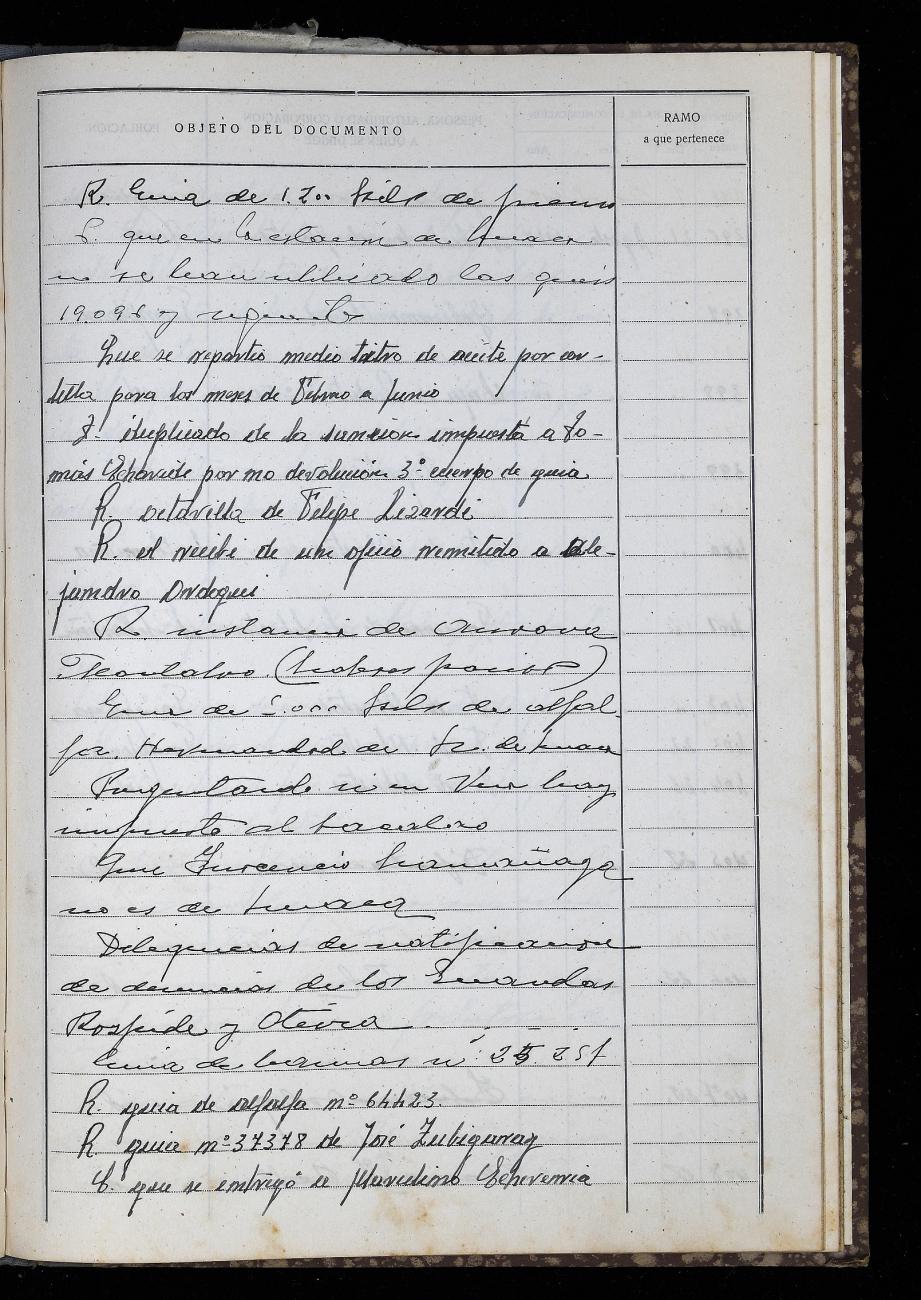 OBJETO DEL DOCUMENTO
RAMO
a que pertenece
R. Guia de 1.200 kilos de pienso
C. que en la estacion de
no se han utilizado las guias
19.096 y siguiente
Que se repartió medio litro de aceite por car-
tilla para los meses de Febrero a Junio
R. duplicado de la sancion impuesta a To-
más Echaride por no devolución 3º cuerpo de guia
R. octavilla de Felipe Lizardi
R. el recibi de un oficio remitido a Ale-
jandro Ordoqui
R. instancia de
Montalvo (haberes pasivos)
Guia de 5.000 kilos de alfal-
fa. Hermandad de
Preguntando si en Vera hay
impuesto al bacalao
Que Inocencio
no es de
Diligencias de notificacion
de denuncias de los Guardas
Rospide y Oteiza
Guia de harinas nº 25.251
R. guia de alfalfa nº 64423.
R. guia nº 37378 de José Zubigaray
C. que se entregó a Marcelino Echeverria